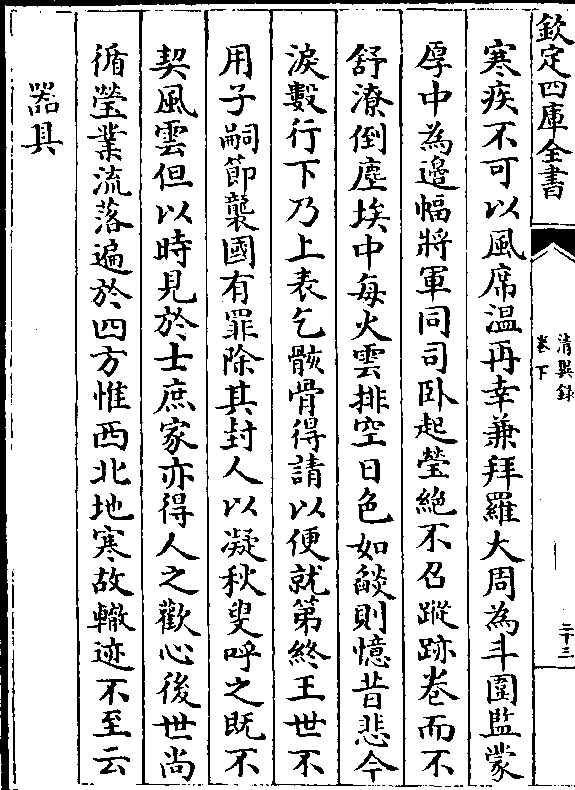 欽定四庫全書
清異錄
卷下
二十三
寒疾不可以風席溫再幸兼拜羅大周為斗圍監蒙
厚中為邊幅將軍同司卧起瑩絶不召蹤跡卷而不
舒潦倒塵埃中每火雲排空日色如燄則憶昔悲今
淚數行下乃上表乞骸骨得請以便就第終王世不
用子嗣節襲國有罪除其封人以凝秋叟呼之既不
契風雲但以時見於士庶家亦得人之歡心後世尚
循瑩業流落遍於四方惟西北地寒故轍迹不至云
器具